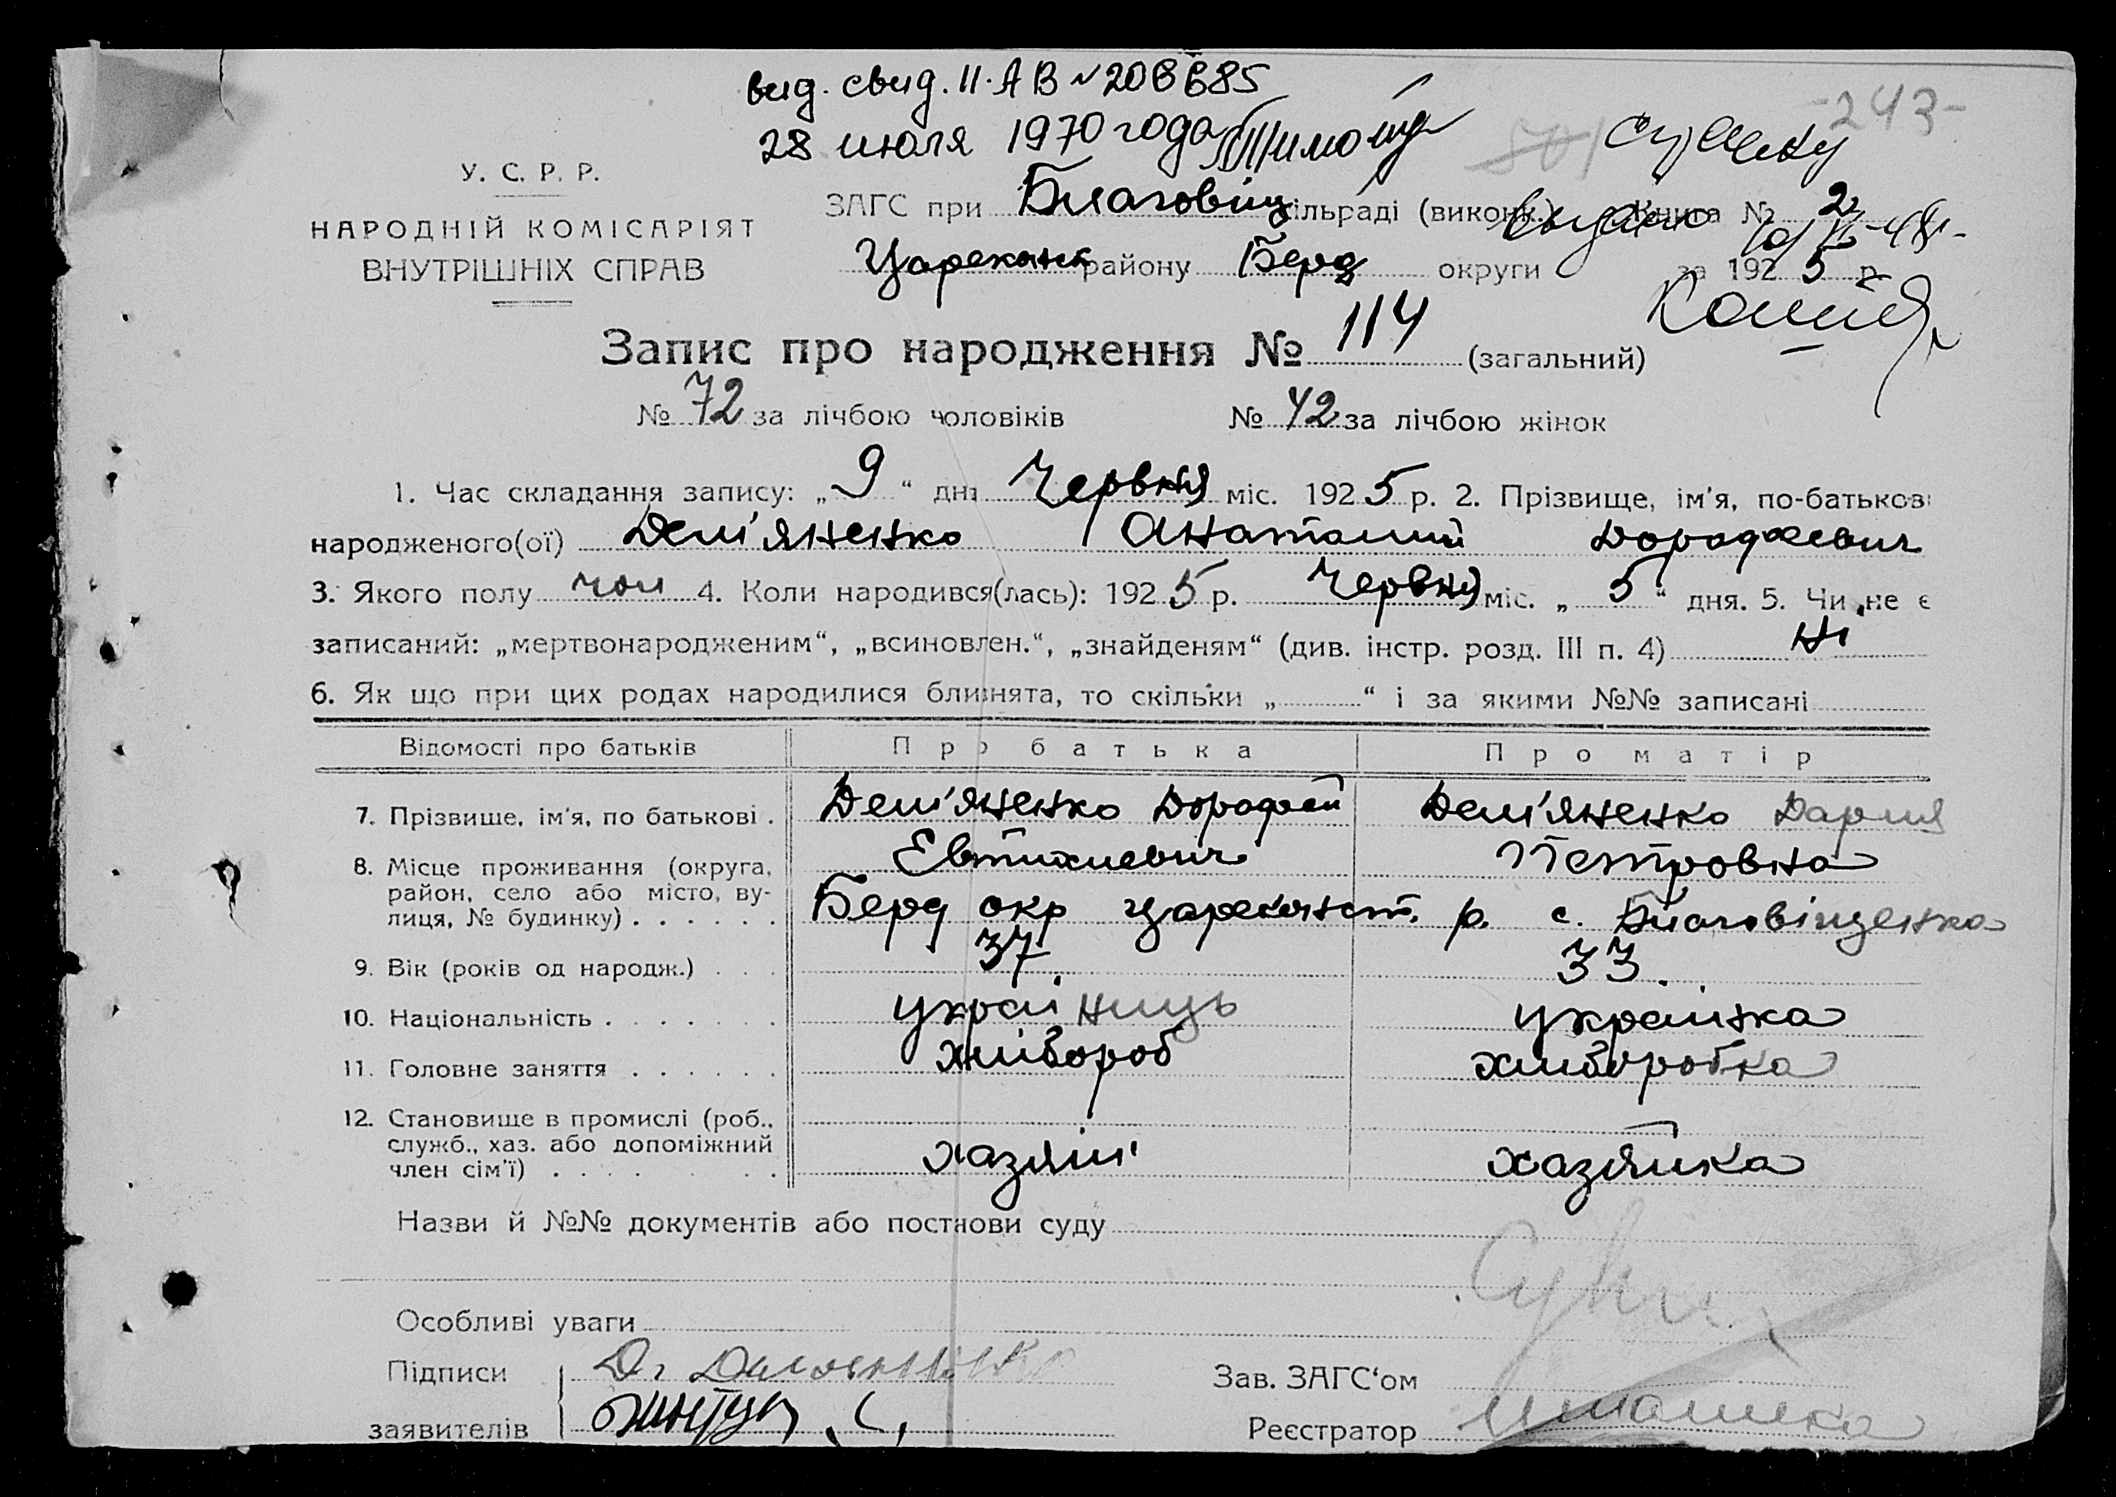 вид. свид. II·АВ № 206685
-243-
28 июля 1970 года
У. С. Р. Р.
ЗАГС при Благовіщ сільраді (виконк.) Книга № 2
НАРОДНІЙ КОМІСАРІЯТ
ВНУТРІШНІХ СПРАВ
Цареконст району Берд округи за 1925 р.
Копия
Запис про народження № 114 (загальний)
№ 72 за лічбою чоловіків № 42 за лічбою жінок
1. Час складання запису: „9“ дня Червня міс. 1925 р. 2. Прізвище, ім'я, по-батькові
народженого(ої) Дем'яненко Анатолий Дорофеевич
3. Якого полу чол 4. Коли народився(лась): 1925 р. Червня міс. „5“ дня. 5. Чи не є
записаний: „мертвонародженим“, „всиновлен.“, „знайденям“ (див. інстр. розд. III п. 4) Ні
6. Як що при цих родах народилися близнята, то скільки „ “ і за якими №№ записані
Відомості про батьків Про батька Про матір
7. Прізвище, ім'я, по батькові . Дем'яненко Дорофей Евтихиевич Дем'яненко Дария Петровна
8. Місце проживання (округа,
район, село або місто, ву-
лиця, № будинку) . . . . . . Берд окр Цареконст. р. с. Благовіщенка
9. Вік (років од народж.) . . . 37. 33.
10. Національність . . . . . . . українць українка
11. Головне заняття . . . . . . хлібороб хліборобка
12. Становище в промислі (роб.,
служб., хаз. або допоміжний
член сім'ї) . . . . . . . хазяїн хазяйка
Назви й №№ документів або постнови суду
Особливі уваги
Підписи
Зав. ЗАГС'ом
заявителів
Реєстратор